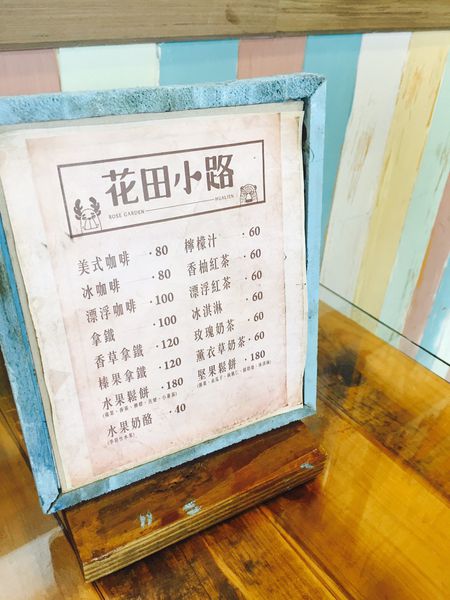 花田小路
ROSE GARDEN HUALIEN
美式咖啡 · 80
冰咖啡 · 80
漂浮咖啡 · 100
拿鐵 · 100
香草拿鐵 · 120
榛果拿鐵 · 120
水果鬆餅 · 180
水果奶酪 · 40
檸檬汁 · 60
香柚紅茶 · 60
漂浮紅茶 · 60
冰淇淋 · 60
玫瑰奶茶 · 60
薰衣草奶茶 · 60
堅果鬆餅 · 180